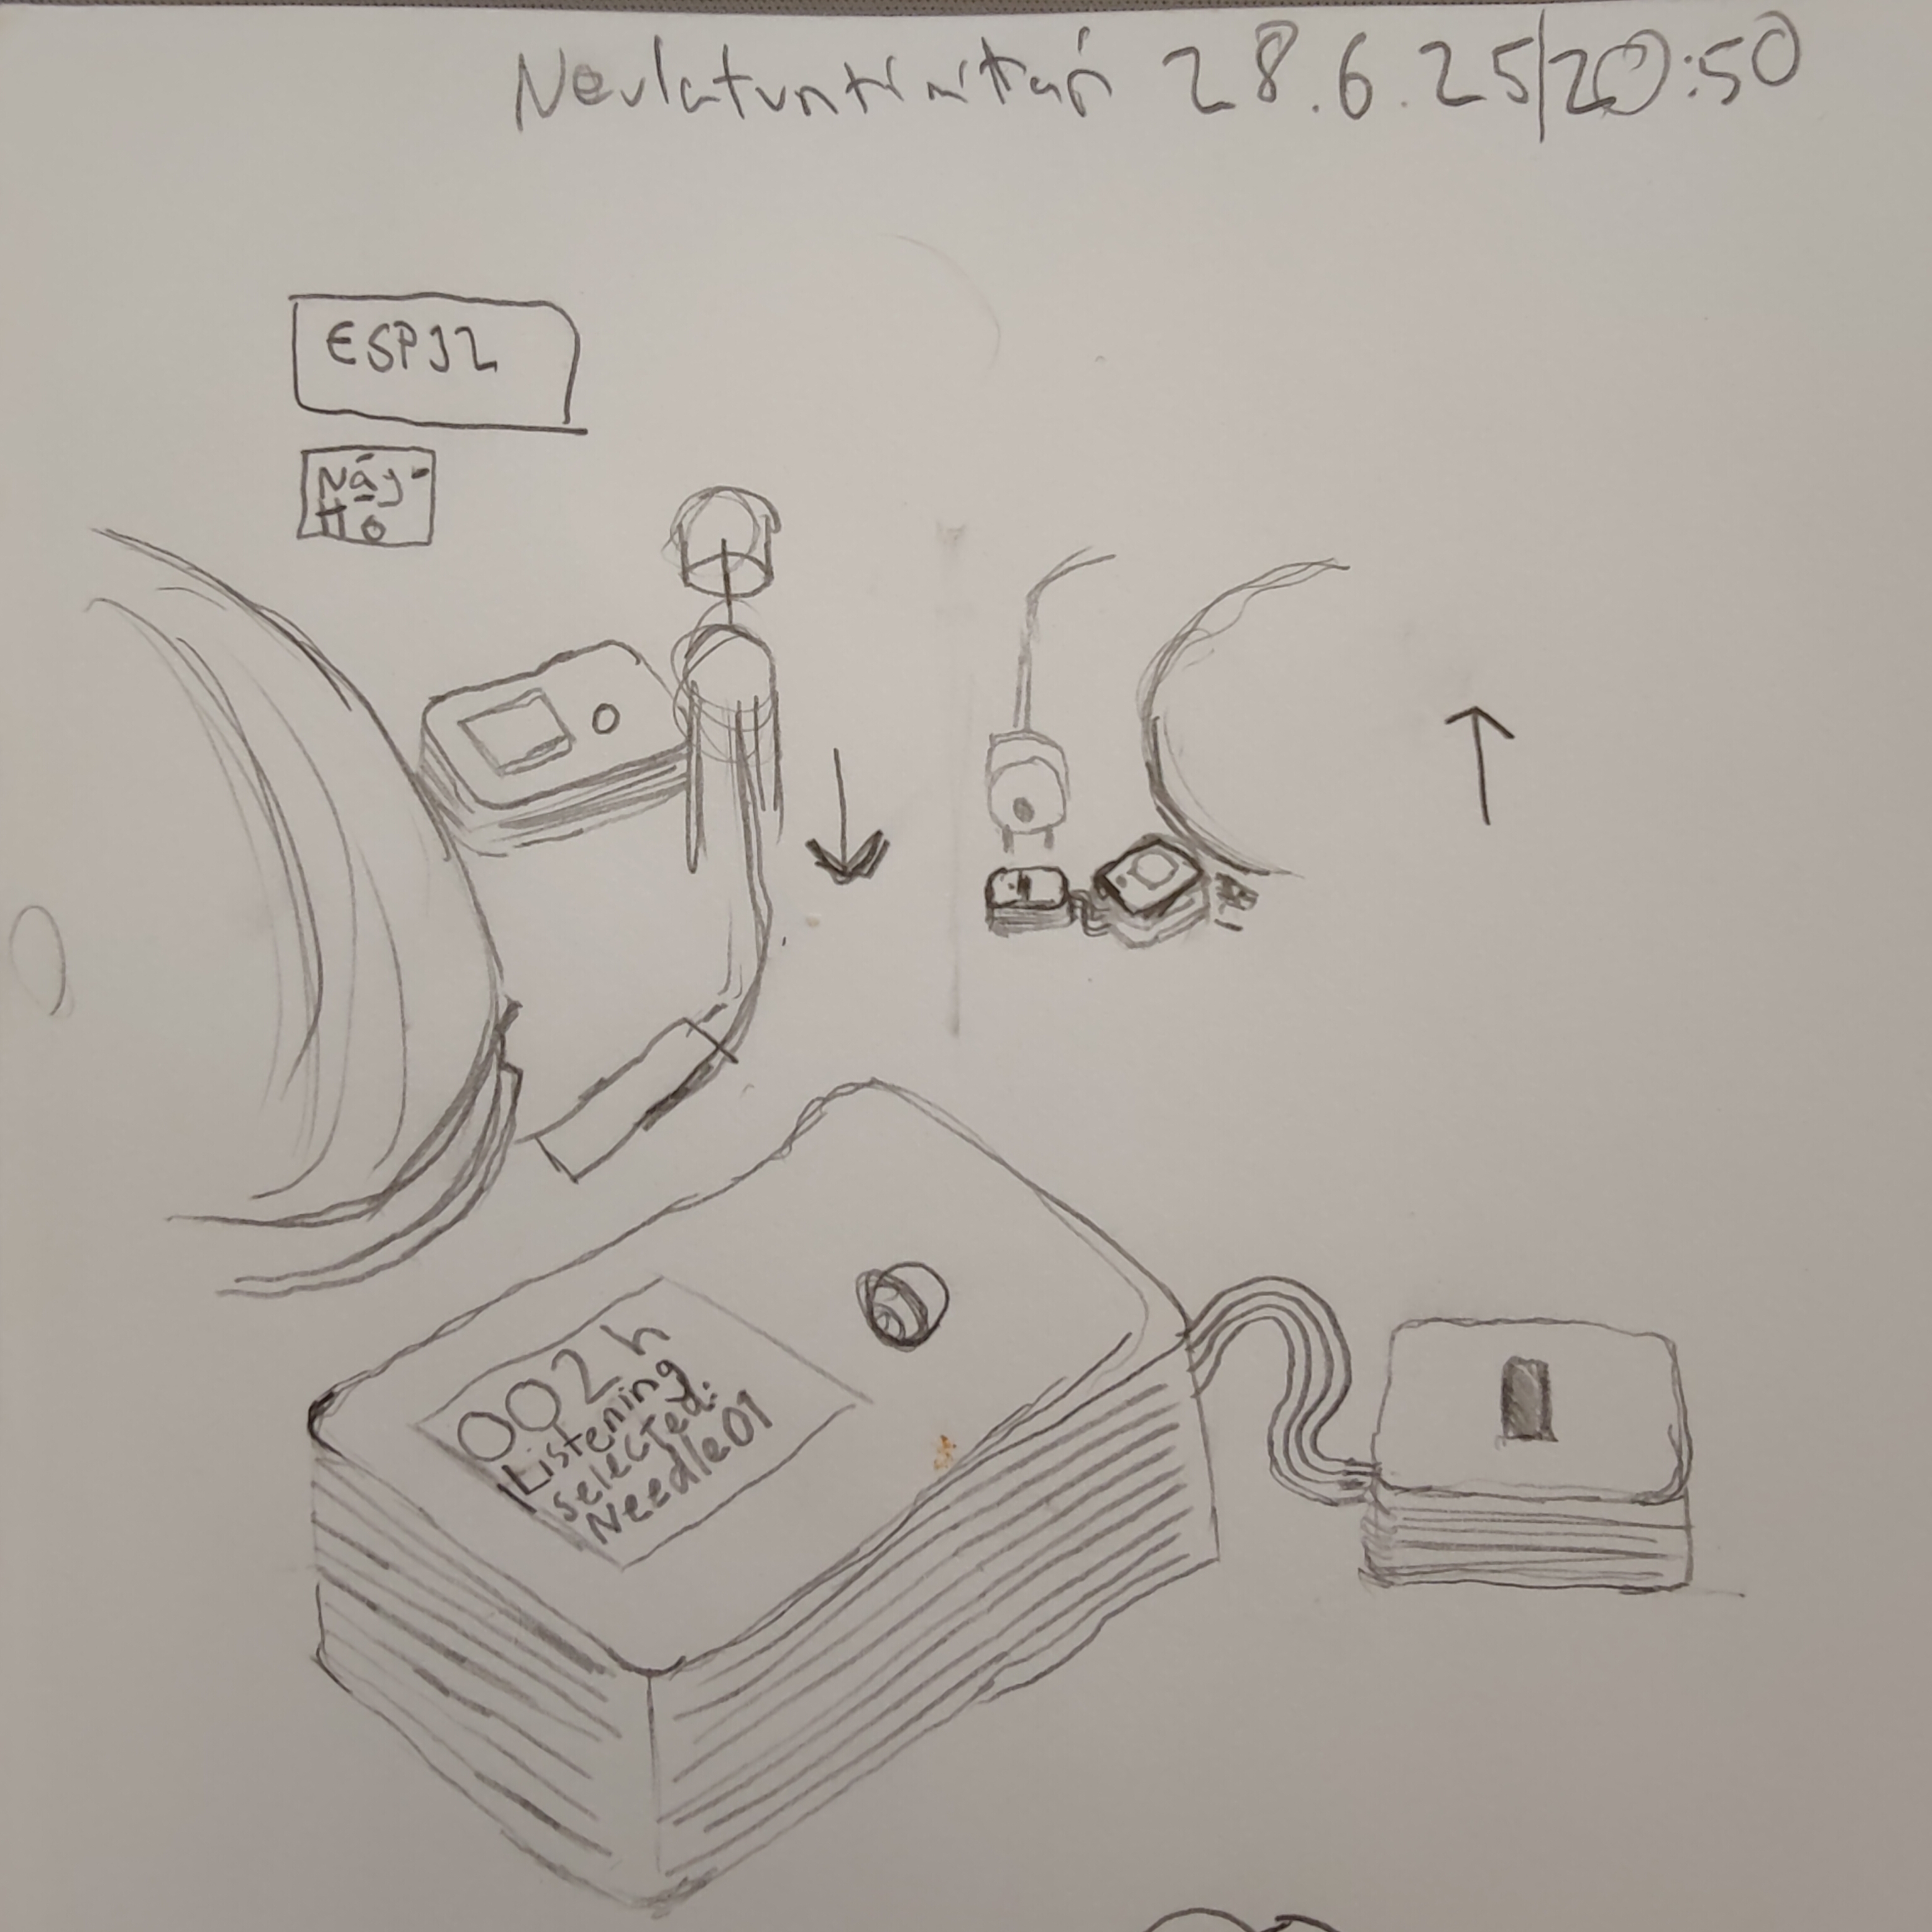 Neulatuntimittari 28.6.25|20:50
ESP32
Näy-
ttö
002h
Listening
selected:
Needle01